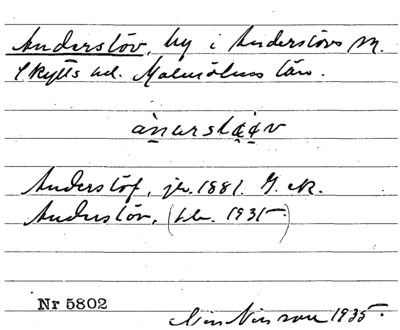 Anderslöv, by i Anderslövs sn.
Skytts hd. Malmöhus län.
Anderslöf, jvs. 1881. G. R.
Anderslöv, 1935
Nr 5802
Nils Nilsson 1935.